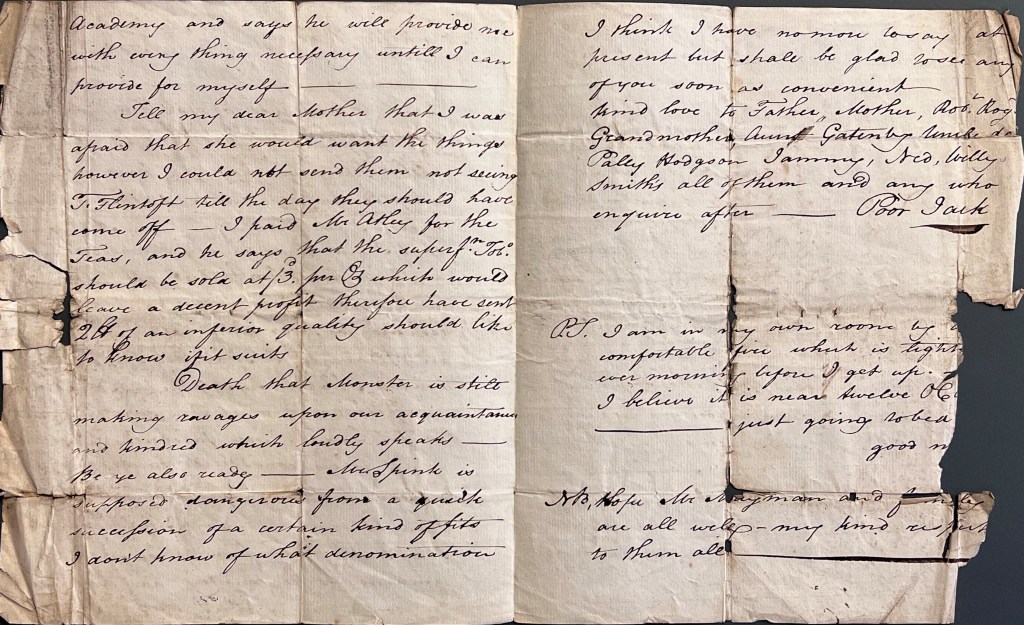 Academy and says he will provide me
with every thing necessary untill I can
provide for myself — —
Tell my dear Mother that I was
afraid that she would want the things
however I could not send them not seeing
T. Flintoft till the day they should have
come off — I paid Mr Atley for the
Teas, and he says that the superfn Tobo
should be sold at /3d per Oz which would
leave a decent profit therefore have sent
2 lb of an inferior quality should like
to know if it suits
Death that Monster is still
making ravages upon our acquaintance
and kindred which loudly speaks —
Be ye also ready — Mr Spink is
supposed dangerous from a quick
succession of a certain kind of fits
I don't know of what denomination
I think I have no more to say at
present but shall be glad to see any
of you soon as convenient
Kind love to Father, Mother, Robt Rogr
Grandmother, Aunt Gatenby Unkle do
Paley Hodgson Jammy, Ned, Willy
Smiths all of them and any who
enquire after — Poor Jack
P.S. I am in my own room by a
comfortable fire which is light
ever morning before I get up.
I believe it is near twelve OC
just going to bed
good n
NB, Hope Mr Mayman and family
are all well — my kind respect
to them all